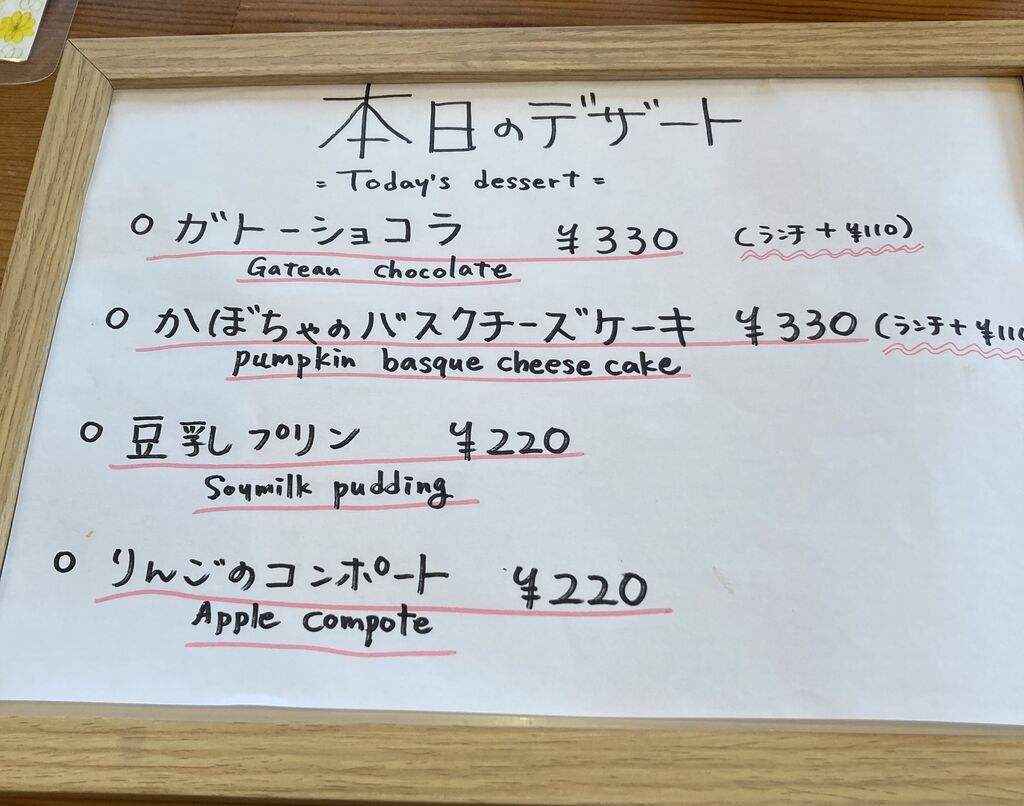 本日のデザート
= Today's dessert =
○ ガトーショコラ ¥330 (ランチ+¥110)
Gateau chocolate
○ かぼちゃのバスクチーズケーキ ¥330 (ランチ+¥110
pumpkin basque cheese cake
○ 豆乳プリン ¥220
Soymilk pudding
○ りんごのコンポート ¥220
Apple compote